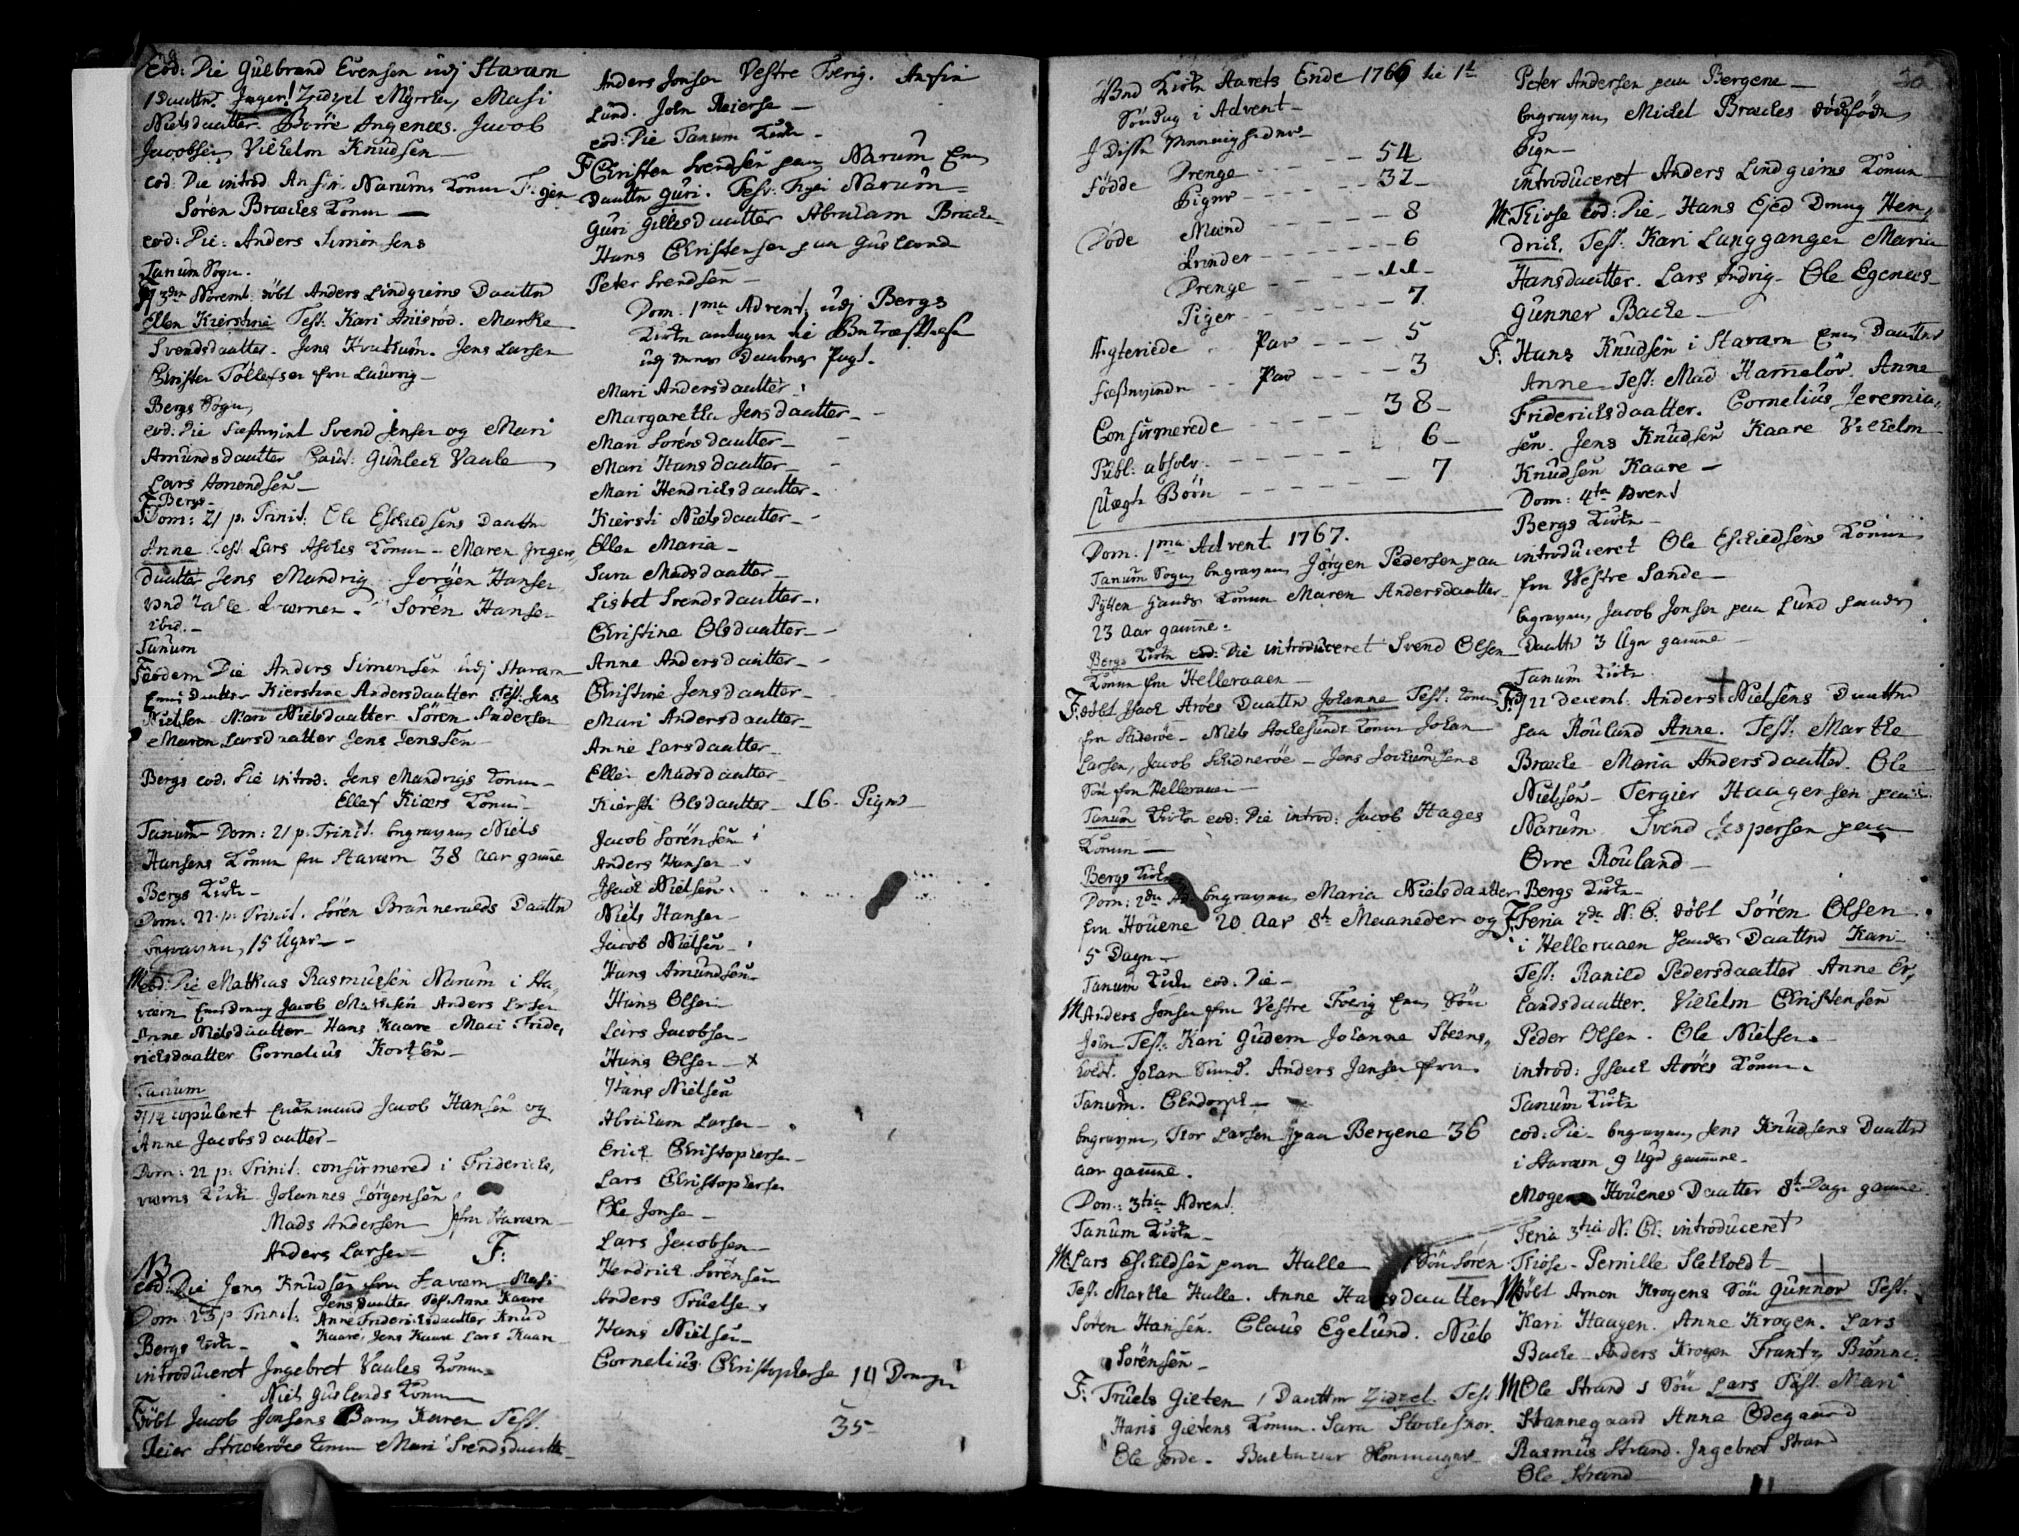 Eod: Die Gulbrand Evensen udj Stavarn
1 Daatter Inger. Zidzel Myrrhe, Masi
Nielsdaatter. Børre Angenees. Jacob
Jacobsen, Vilhelm Knudsen
eod: Die introd. Narums Konen
Sören Brackes Konen —
eod: Die: Anders Simonsens
Tanum Sogn.
3die Novemb: döbt Anders Lindgiems Daatter
Ellen Kierstine Test: Kari Anisröd. Marthe
Svendsdaatter. Jens Hvathum. Jens Larsen
Christen Tollefsen fra Laurvig —
Bergs Sogn
eod: Die Svend Jensen og Mari
Amundsdaatter Caut: Gunleck Vaale
Lars Amondsen —
F Bergs —
Dom: 21 p. Trinit: Ole Eskildsens Daatter
Anne Test Lars Askes Konen — Maren Gregers
Daatter Jens Mandrig Jörgen Hansen
Sören Hansen
ibid. —
Tanum
F eodem Die Anders Simonsen udj Stavarn
Daatter Kierstine Andersdaatter Test: Jens
Nielsen Mari Nielsdaatter Sören Andersen
Maren Larsdaatter Jens Jenssen —
Bergs eod: Die introd: Jens Mandrigs Konen —
Ellef Kiærs Konen —
Tanum — Dom: 21 p. Trinit. begraven Niels
Hansens Konen fra Stavarn 38 Aar gamle
Bergs Kirke —
Dom: 22 p. Trinit. Sören Brunneraeds Daatter
begraven, 15 Uger —
M eod: Die Mathias Rasmusen Narum i Sta
værn Jacob Anders Larsen
Anne Nielsdaatter — Hans Kaare Mari Fride,
richsdaatter Cornelius Kortsen —
Tanum
copuleret Jacob Hansen og
Anne Jacobsdaatter —
Dom: 22 p. Trinit: confirmered i Friderichs,
værns Kirke Johannes Jörgensen
Mads Andersen } fra Stavern —
Anders Larsen — F:
NB
eod: Die Jens Knudsen fra Stavern Masi
Jensdaatter Test: Anne Kaare
Dom: 23 p. Trinit: Anne Friderichsdaatter Knud
Bergs Kirke — Kaare, Jens Kaare Lars Kaare
introduceret Ingebret Vaales Konen
Niels Guslands Konen
F Döbt Jacob Jonsens Barn Karen Test.
Reier Konen Mari Svendsdaatter
Anders Jonsen Vestre Foerig. Ansfin
Lund. John Reierse —
eod: Die Tanum Kirke —
F Christen Svendsen paa Narum En
Daatter Guri. Test: Narum —
Guri Gillesdaatter Abraham Bracke
Hans Christensen paa Gusland
Peter Svendsen —
Dom. 1ma Advent. udj Bergs
Kirke antagen til
udj Daabens Pagt.
Mari Andersdaatter
Margaretha Jensdaatter —
Mari Sörensdaatter —
Mari Hansdaatter —
Mari Hendrichsdaatter —
Kiersti Nielsdaatter —
Ellen Maria —
Sara Madsdaatter —
Lisbet Svendsdaatter —
Christine Olsdaatter —
Anne Andersdaatter —
Christine Jensdaatter —
Mari Andersdaatter —
Anne Larsdaatter —
Ellen Madsdaatter —
Kiersti Olsdaatter — 16. Piger —
Jacob Sörensen
Anders Hansen —
Isack Nielsen
Niels Hansen —
Jacob Nielsen —
Hans Amundsen —
Hans Olsen —
Lars Jacobsen —
Hans Olsen — x
Hans Nielsen
Abraham Larsen —
Erick Christophersen —
Lars Christophersen
Ole Jonsen —
Lars Jacobsen —
Hendrich Sörensen
Anders Truelsen
Hans Nielsen —
Cornelius Christophersen 19 Drenge
35 —
Ved Kirke Aarets Ende 1766 til 1te
Söndag i Advent —
I Disse Menigheder —
födde Drenge - - - 54
Piger - - - 32 —
Döde Mænd - - - 8
Qvinder - - - 6
Drenge - - - 11 —
Piger - - - 7
Ægteviede Par - - - 5
Par - - - 3
Confirmerede - - - 38 —
Publ: absolv. - - - 6 —
Uægte Börn - - - 7
Dom. 1ma Advent 1767.
Tanum Sogn, begraven Jörgen Pedersen paa
Pytten hands Konen Maren Andersdaatter
23 Aar gamle.
Bergs Kirke eod: Die introduceret Svend Olsen
Konen fra Helleraaen —
F: döbt Isack Aröes Daatter Johanne Test: Konen
fra Niels Stochesunds Konen Johan
Larsen, Jacob Schidneröe — Jens Jockumsens
Sön fra Helleraaen —
Tanum Kirke eod: Die introd: Jacob Hages
Konen —
Bergs Kirke
Dom: 2da Ad begraven Maria Nielsdaatter
fra Houene 20 Aar 8te Maaneder og
5 Dage —
Tanum Kirke eod: Die —
M Anders Jonsen fra Vestre Foerig En Sön
John Test: Kari Gudem Johanne Steens,
holdt. Johan Sund. Anders Jansen fra
Tanum.
begraven, Tor Larsen paa Bergene 36
aar gamle.
Dom: 3tia Advent.
Tanum Kirke —
M Lars Eskildsen paa Halle 1 Sön Sören
Test: Marthe Halle. Anne Hansdaatter
Sören Hansen. Claus Egelund. Niels
Sörensen —
F: Truels Gieten 1 Daatter Zidzel. Test
Hans Gietens Konen. Sara
Ole Jorde —
30
Peter Andersen paa Bergene —
begraven, Michel Brackes dödfödn
Pige —
introduceret Anders Lindgiems Konen
M Kiose eod: Die — Hans Ejed Dreng Hen,
drich. Test: Kari Langganger Maria
Hansdaatter. Lars Indrig — Ole Egenees —
Gunner Backe —
F: Hans Knudsen i Stavarn En Daatter
Anne — Test: Mad Hameløv. Anne
Friderichsdaatter. Cornelius Jeremia,
sen. Jens Knudsen Kaare Vilhelm
Knudsen Kaare —
Dom: 4ta Advent
Bergs Kirke —
introduceret Ole Eskiedsens Konen
fra Westre Sande —
begraven, Jacob Jonsen paa Lund hands
Daatter 3 Uger gamle —
Tanum Kirke
F: d 22 decemb: Anders Nielsens Daatter
paa Rouland Anne. Test: Marthe
Bracke Maria Andersdaatter. Ole
Nielsen — Tergier Haagensen paa
Narum. Svend Jespersen paa
Övre Rouland —
Bergs Kirke —
F: Feria 2da N. C. döbt Sören Olsen
i Helleraaen hands Daatter Kari —
Test: Ranild Pedersdaatter Anne Er,
landsdaatter. Vilhelm Christensen
Peder Olsen — Ole Nielsen.
introd: Isack Aröes Konen.
Tanum Kirke
eod: Die — begraven, Jens Knudsens Daatter
i Stavarn 9 Uger gamle —
Mogens Houenes Daatter 8te Dage gamle
Feria 3tia N. C. introduceret
Kiose — Pernille Sletholdt —
M döbt Amon Krogens Sön Gunner Test.
Kari Haagen. Anne Krogen. Lars
Backe — Anders Krogen Frantz Brönne.
M Ole Strand 1 Sön Lars Test. Mari
Stannegaard Anne Ödegaard
Rasmus Strand. Ingebret Strand
Ole Strand